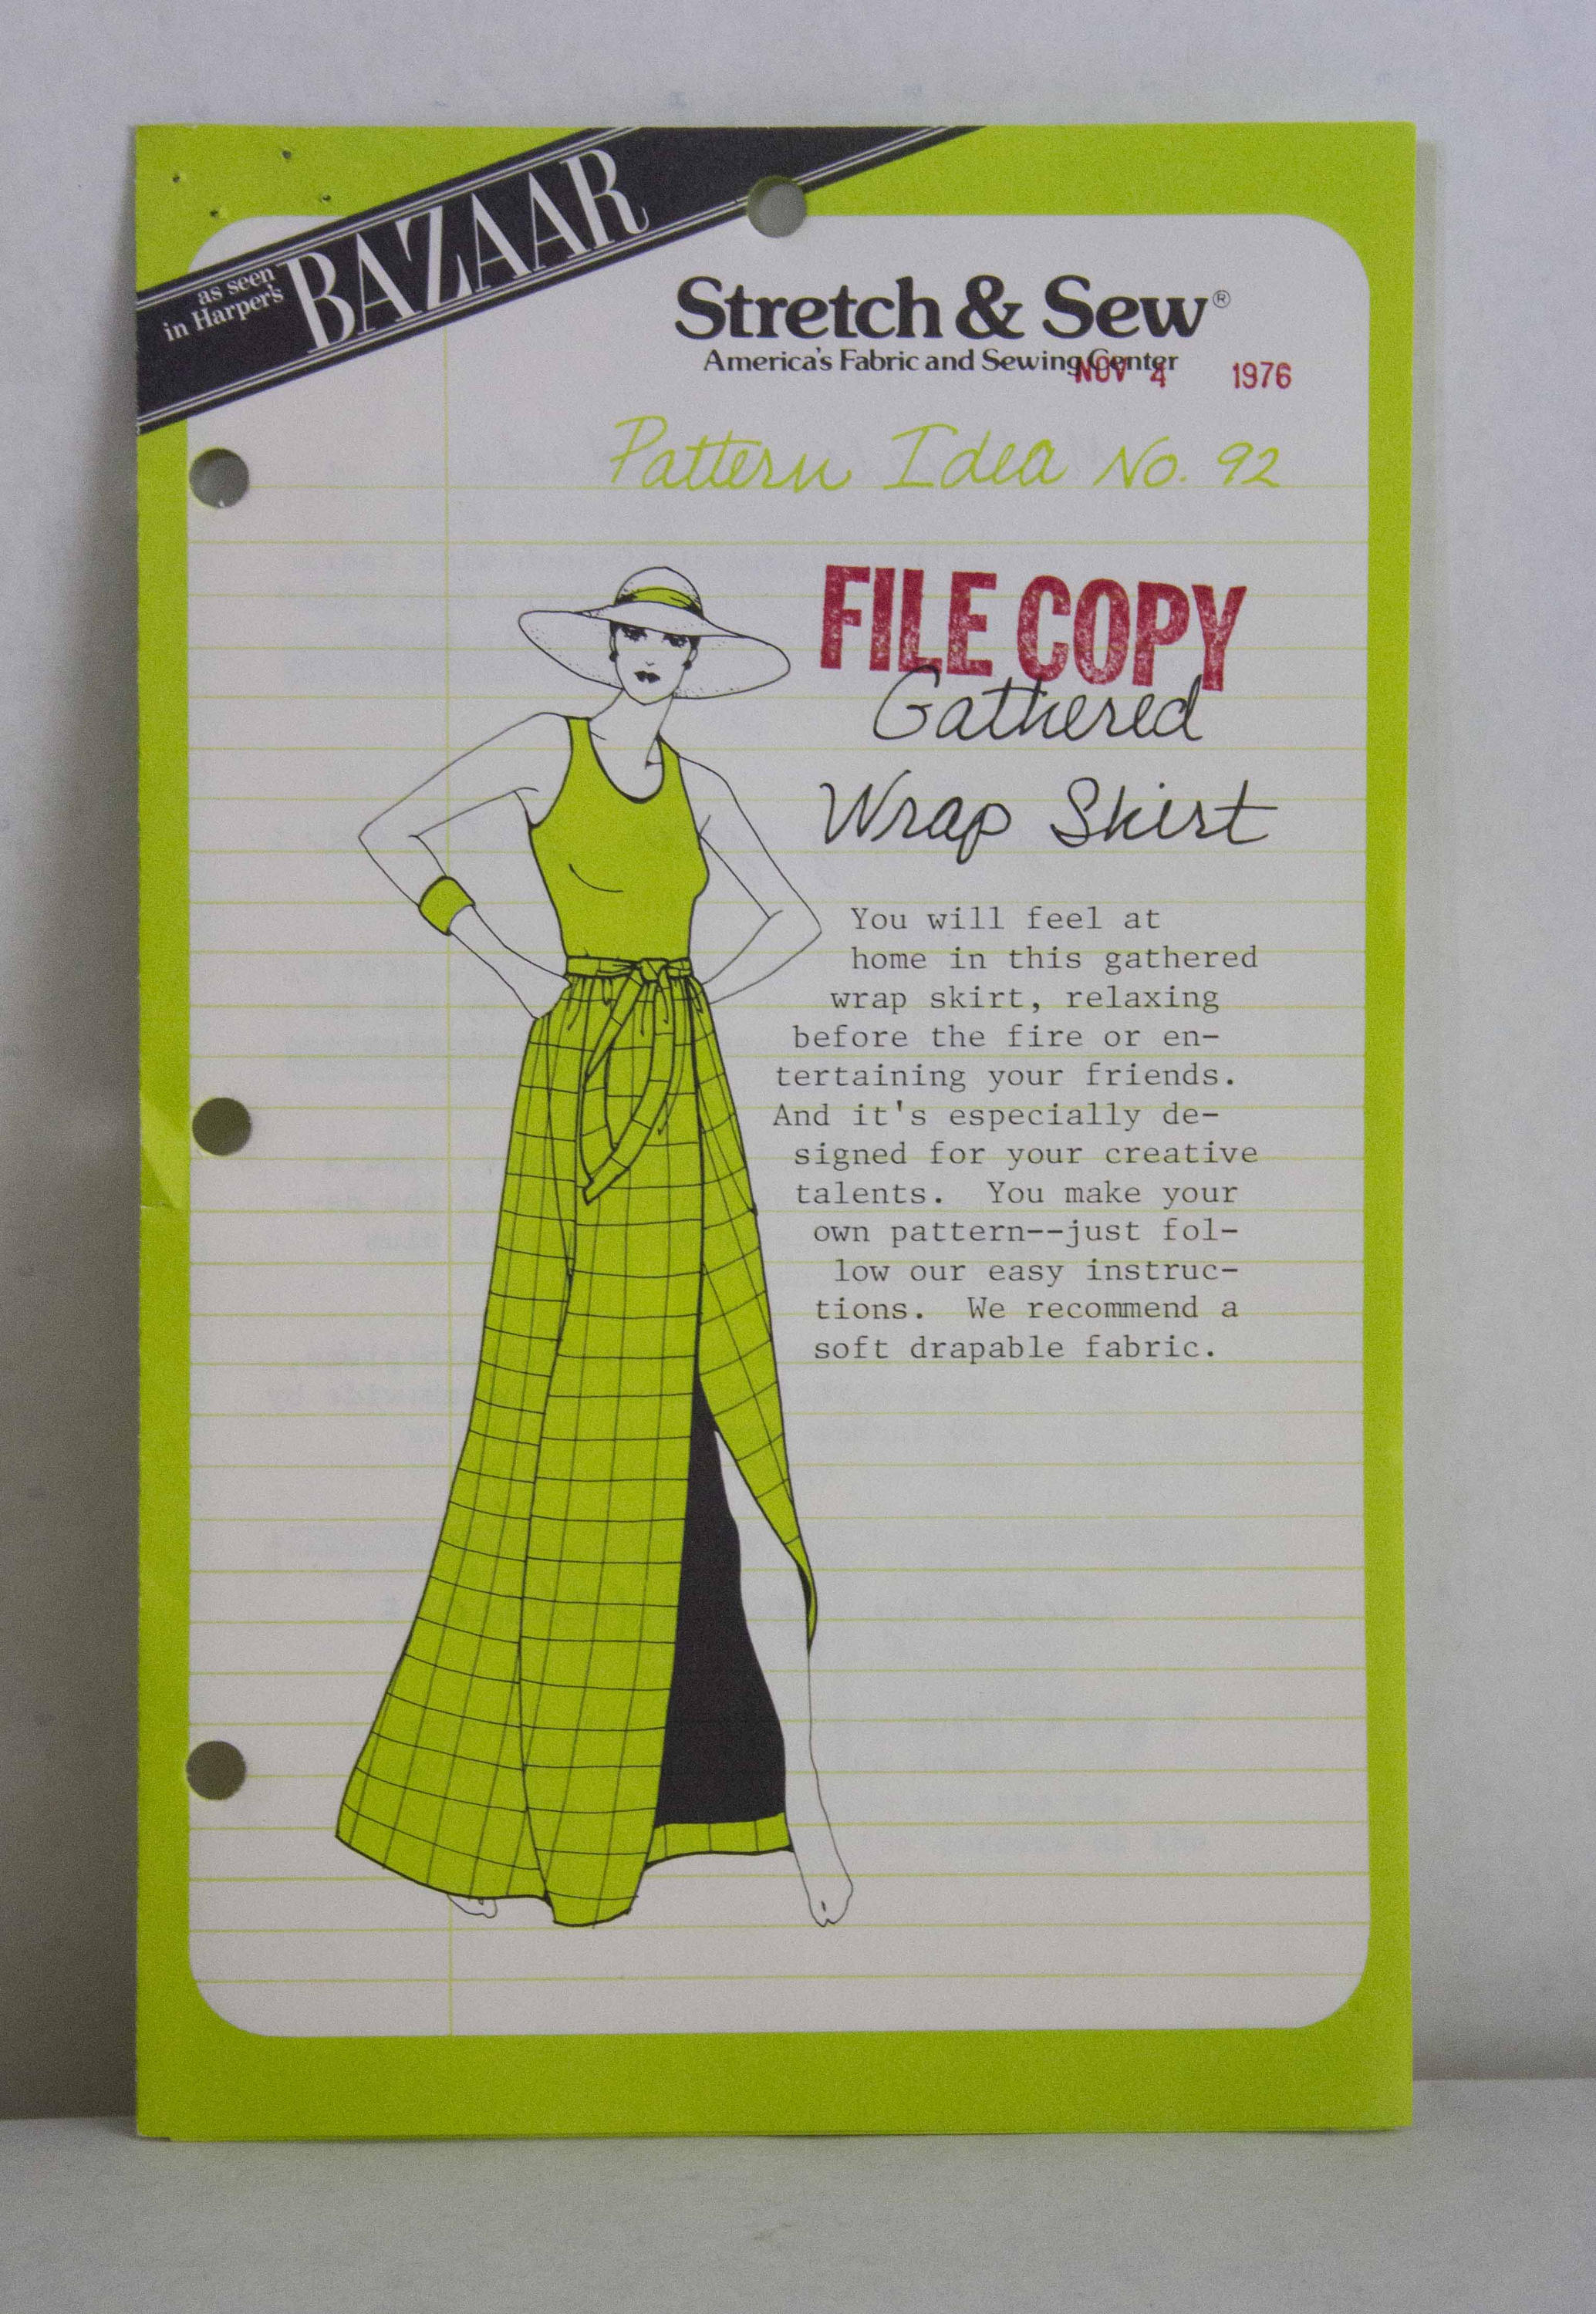 as seen
in Harper's
BAZAAR
Stretch & Sew®
America's Fabric and Sewing Center
NOV 4 1976
Pattern Idea No. 92
FILE COPY
Gathered
Wrap Skirt
You will feel at
home in this gathered
wrap skirt, relaxing
before the fire or en-
tertaining your friends.
And it's especially de-
signed for your creative
talents. You make your
own pattern--just fol-
low our easy instruc-
tions. We recommend a
soft drapable fabric.